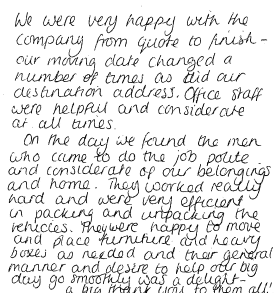 We were very happy with the
company from quote to finish -
our moving date changed a
number of times as did our
destination address. Office staff
were helpful and considerate
at all times.
On the day we found the men
who came to do the job polite
and considerate of our belongings
and home. They worked really
hard and were very efficient
in packing and unpacking the
vehicles. They were happy to move
and place furniture and heavy
boxes as needed and ther general
manner and desire to help our big
day go smoothly was a delight -
a big thank you to them all!